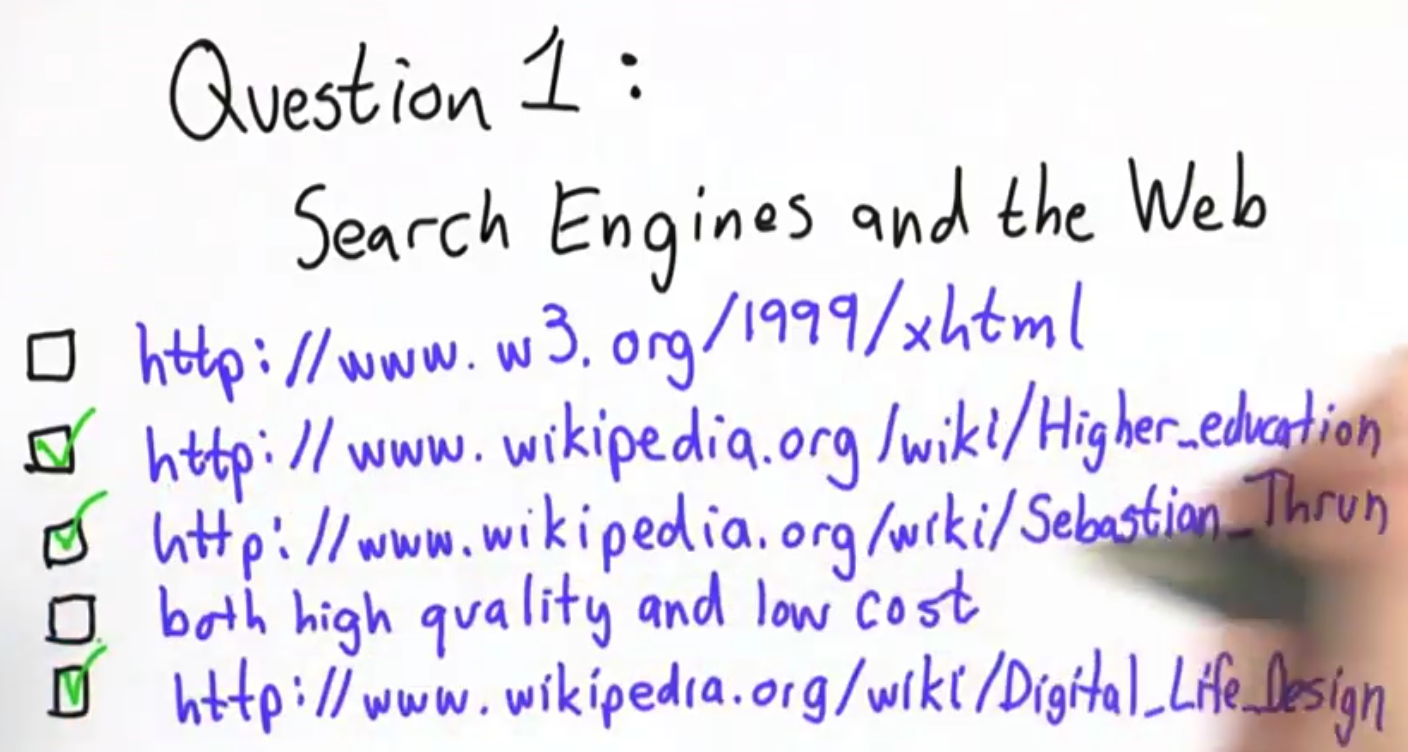 Question 1:
Search Engines and the Web
http://www.w3.org/1999/xhtml
http://www.wikipedia.org/wiki/Higher_education
http://www.wikipedia.org/wiki/Sebastian_Thrun
both high quality and low cost
http://www.wikipedia.org/wiki/Digital_Life_Design